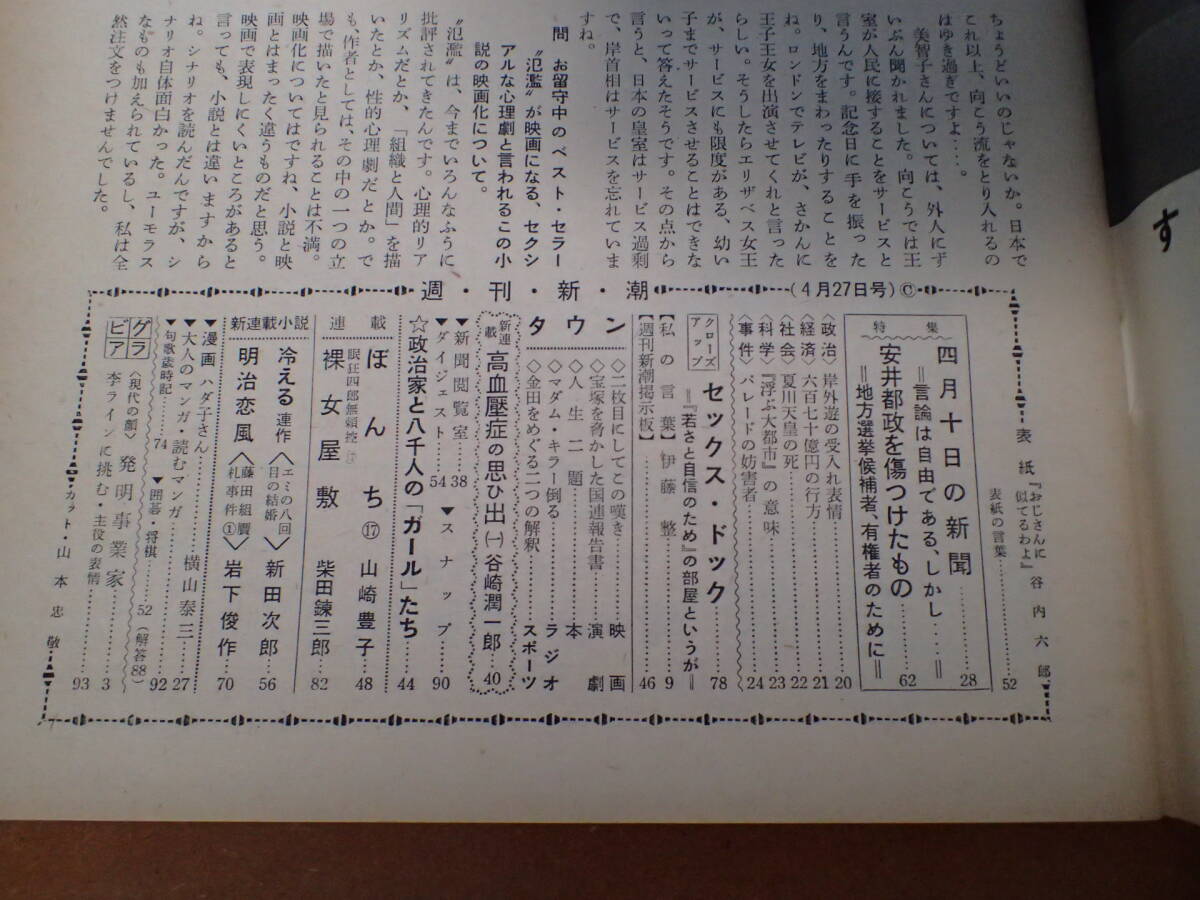 ちょうどいいのじゃないか。日本で
これ以上、向こう流をとり入れるの
はゆき過ぎですよ‥‥。
美智子さんについては、外人にず
いぶん聞かれました。向こうでは王
室が人民に接することをサービスと
言うんです。記念日に手を振った
り、地方をまわったりすることを
ね。ロンドンでテレビが、さかんに
王子王女を出演させてくれと言った
らしい。そうしたらエリザベス女王
が、サービスにも限度がある、幼い
子までサービスさせることはできな
いって答えたそうです。その点から
言うと、日本の皇室はサービス過剰
で、岸首相はサービスを忘れていま
すね。
問 お留守中のベスト・セラー
〝氾濫〟が映画になる、セクシ
アルな心理劇と言われるこの小
説の映画化について。
〝氾濫〟は、今までいろんなふうに
批評されてきたんです。心理的リア
リズムだとか、「組織と人間」を描
いたとか、性的心理劇だとか。で
も、作者としては、その中の一つの立
場で描いたと見られることは不満。
映画化についてはですね、小説と映
画とはまったく違うものだと思う。
映画で表現しにくいところがあると
言っても、小説とは違いますから
ね。シナリオを読んだんですが、シ
ナリオ自体面白かった。ユーモラス
なものも加えられているし、私は全
然注文をつけませんでした。
す
週・刊・新・潮
(4月27日号)©
表紙『おじさんに似てるわよ』谷内六郎
表紙の言葉 52
特集
四月十日の新聞 28
=言論は自由である、しかし‥‥=
安井都政を傷つけたもの 62
=地方選挙候補者、有権者のために=
〈政治〉岸外遊の受入れ表情 20
〈経済〉六百七十億円の行方 21
〈社会〉夏川天皇の死 22
〈科学〉『浮ぶ大都市』の意味 23
〈事件〉パレードの妨害者 24
クローズアップ
セックス・ドック 78
=『若さと自信のため』の部屋というが=
私の言葉 伊藤整 9
【週刊新潮掲示板】 46
タウン
◇二枚目にしてこの嘆き 映画
◇宝塚を脅かした国連報告書 演劇
◇人生二題 本
◇マダム・キラー倒る ラジオ
◇金田をめぐる二つの解釈 スポーツ
新連載 高血壓症の思ひ出 ㈠ 谷崎潤一郎 40
▼新聞閲覧室 38 ▼スナップ 90
▼ダイジェスト 54
☆政治家と八千人の「ガール」たち 44
連載
ぼんち ⑰ 山崎豊子 48
眠狂四郎無頼控
裸女屋敷 柴田錬三郎 82
新連載小説
冷える 連作 〈エミの八回目の結婚〉新田次郎 56
明治恋風〈藤田組贋札事件①〉岩下俊作 70
▼漫画 ハダ子さん 横山泰三 27
▼大人のマンガ・読むマンガ 92
▼句歌歳時記 74 ▼囲碁・将棋 52(解答88)
グラビア
〈現代の顔〉発明事業家 3
李ラインに挑む・主役の表情 93
カット・山本忠敬